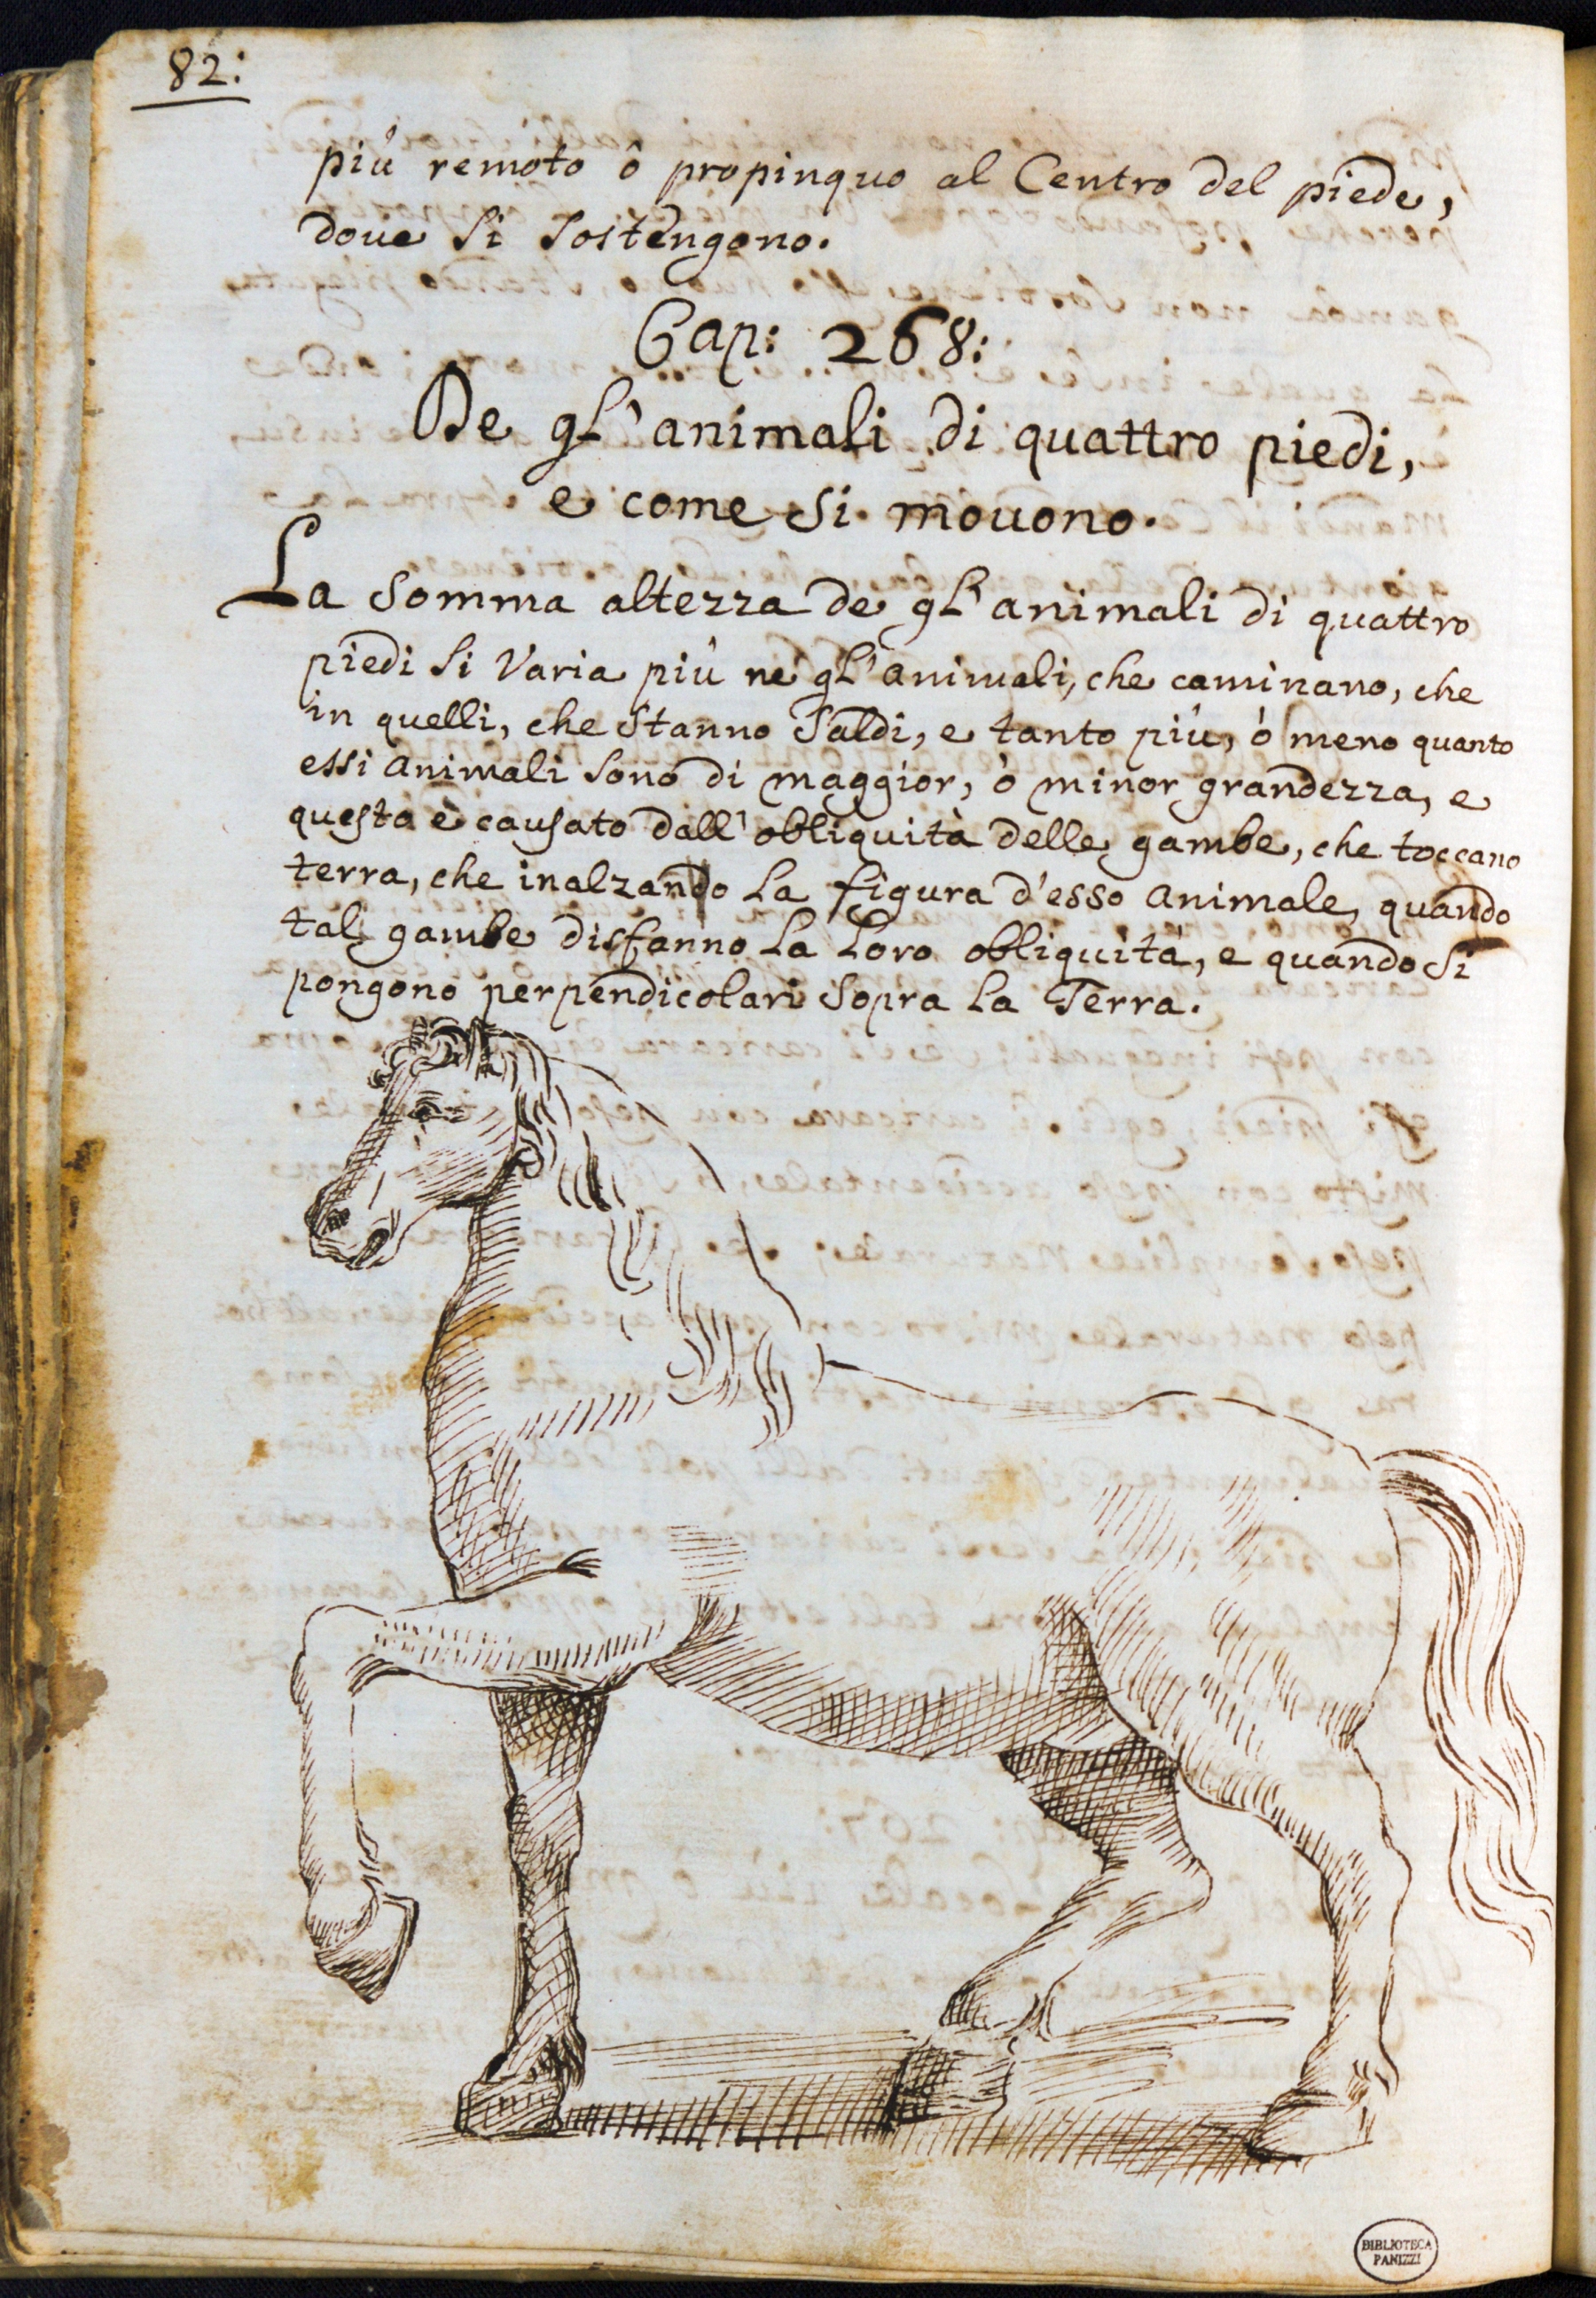 82:
più remoto ô propinquo al Centro del piede,
doue si sostengono.
Cap: 268:
De gl'animali di quattro piedi,
e come si mouono.
La somma altezza de gl'animali di quattro
piedi si Varia più ne gl'animali, che caminano, che
in quelli, che stanno saldi, e tanto più, ò meno quanto
essi animali sono di maggior, ò minor grandezza, e
questo è causato dall'obliquità delle gambe, che toccano
terra, che inalzando la figura d'esso animale, quando
tali gambe disfanno la loro obliquità, e quando si
pongono perpendicolari sopra la Terra.
BIBLIOTECA
PANIZZI